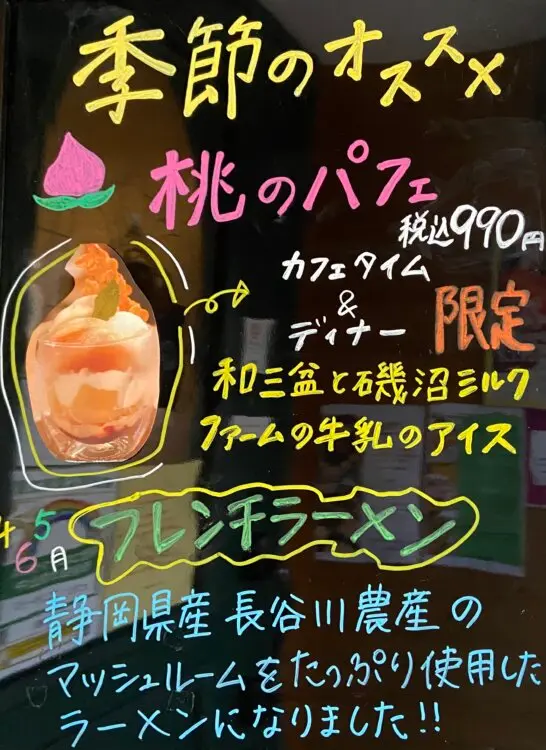 季節のオススメ
桃のパフェ
税込990円
カフェタイム
&
ディナー 限定
和三盆と磯沼ミルク
ファームの牛乳のアイス
4 5 6月
フレンチラーメン
静岡県産 長谷川農産の
マッシュルームをたっぷり使用した
ラーメンになりました!!